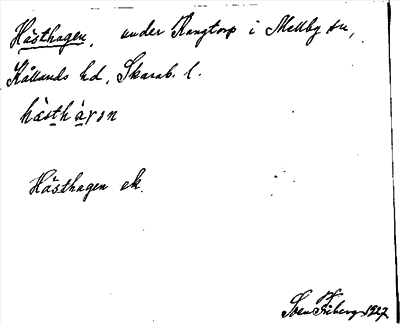 Hästhagen, under Rangtorp i Mellby sn,
Kållands hd, Skarab. l.
hästhàvsn
Hästhagen ek.
Sven Friberg 1927